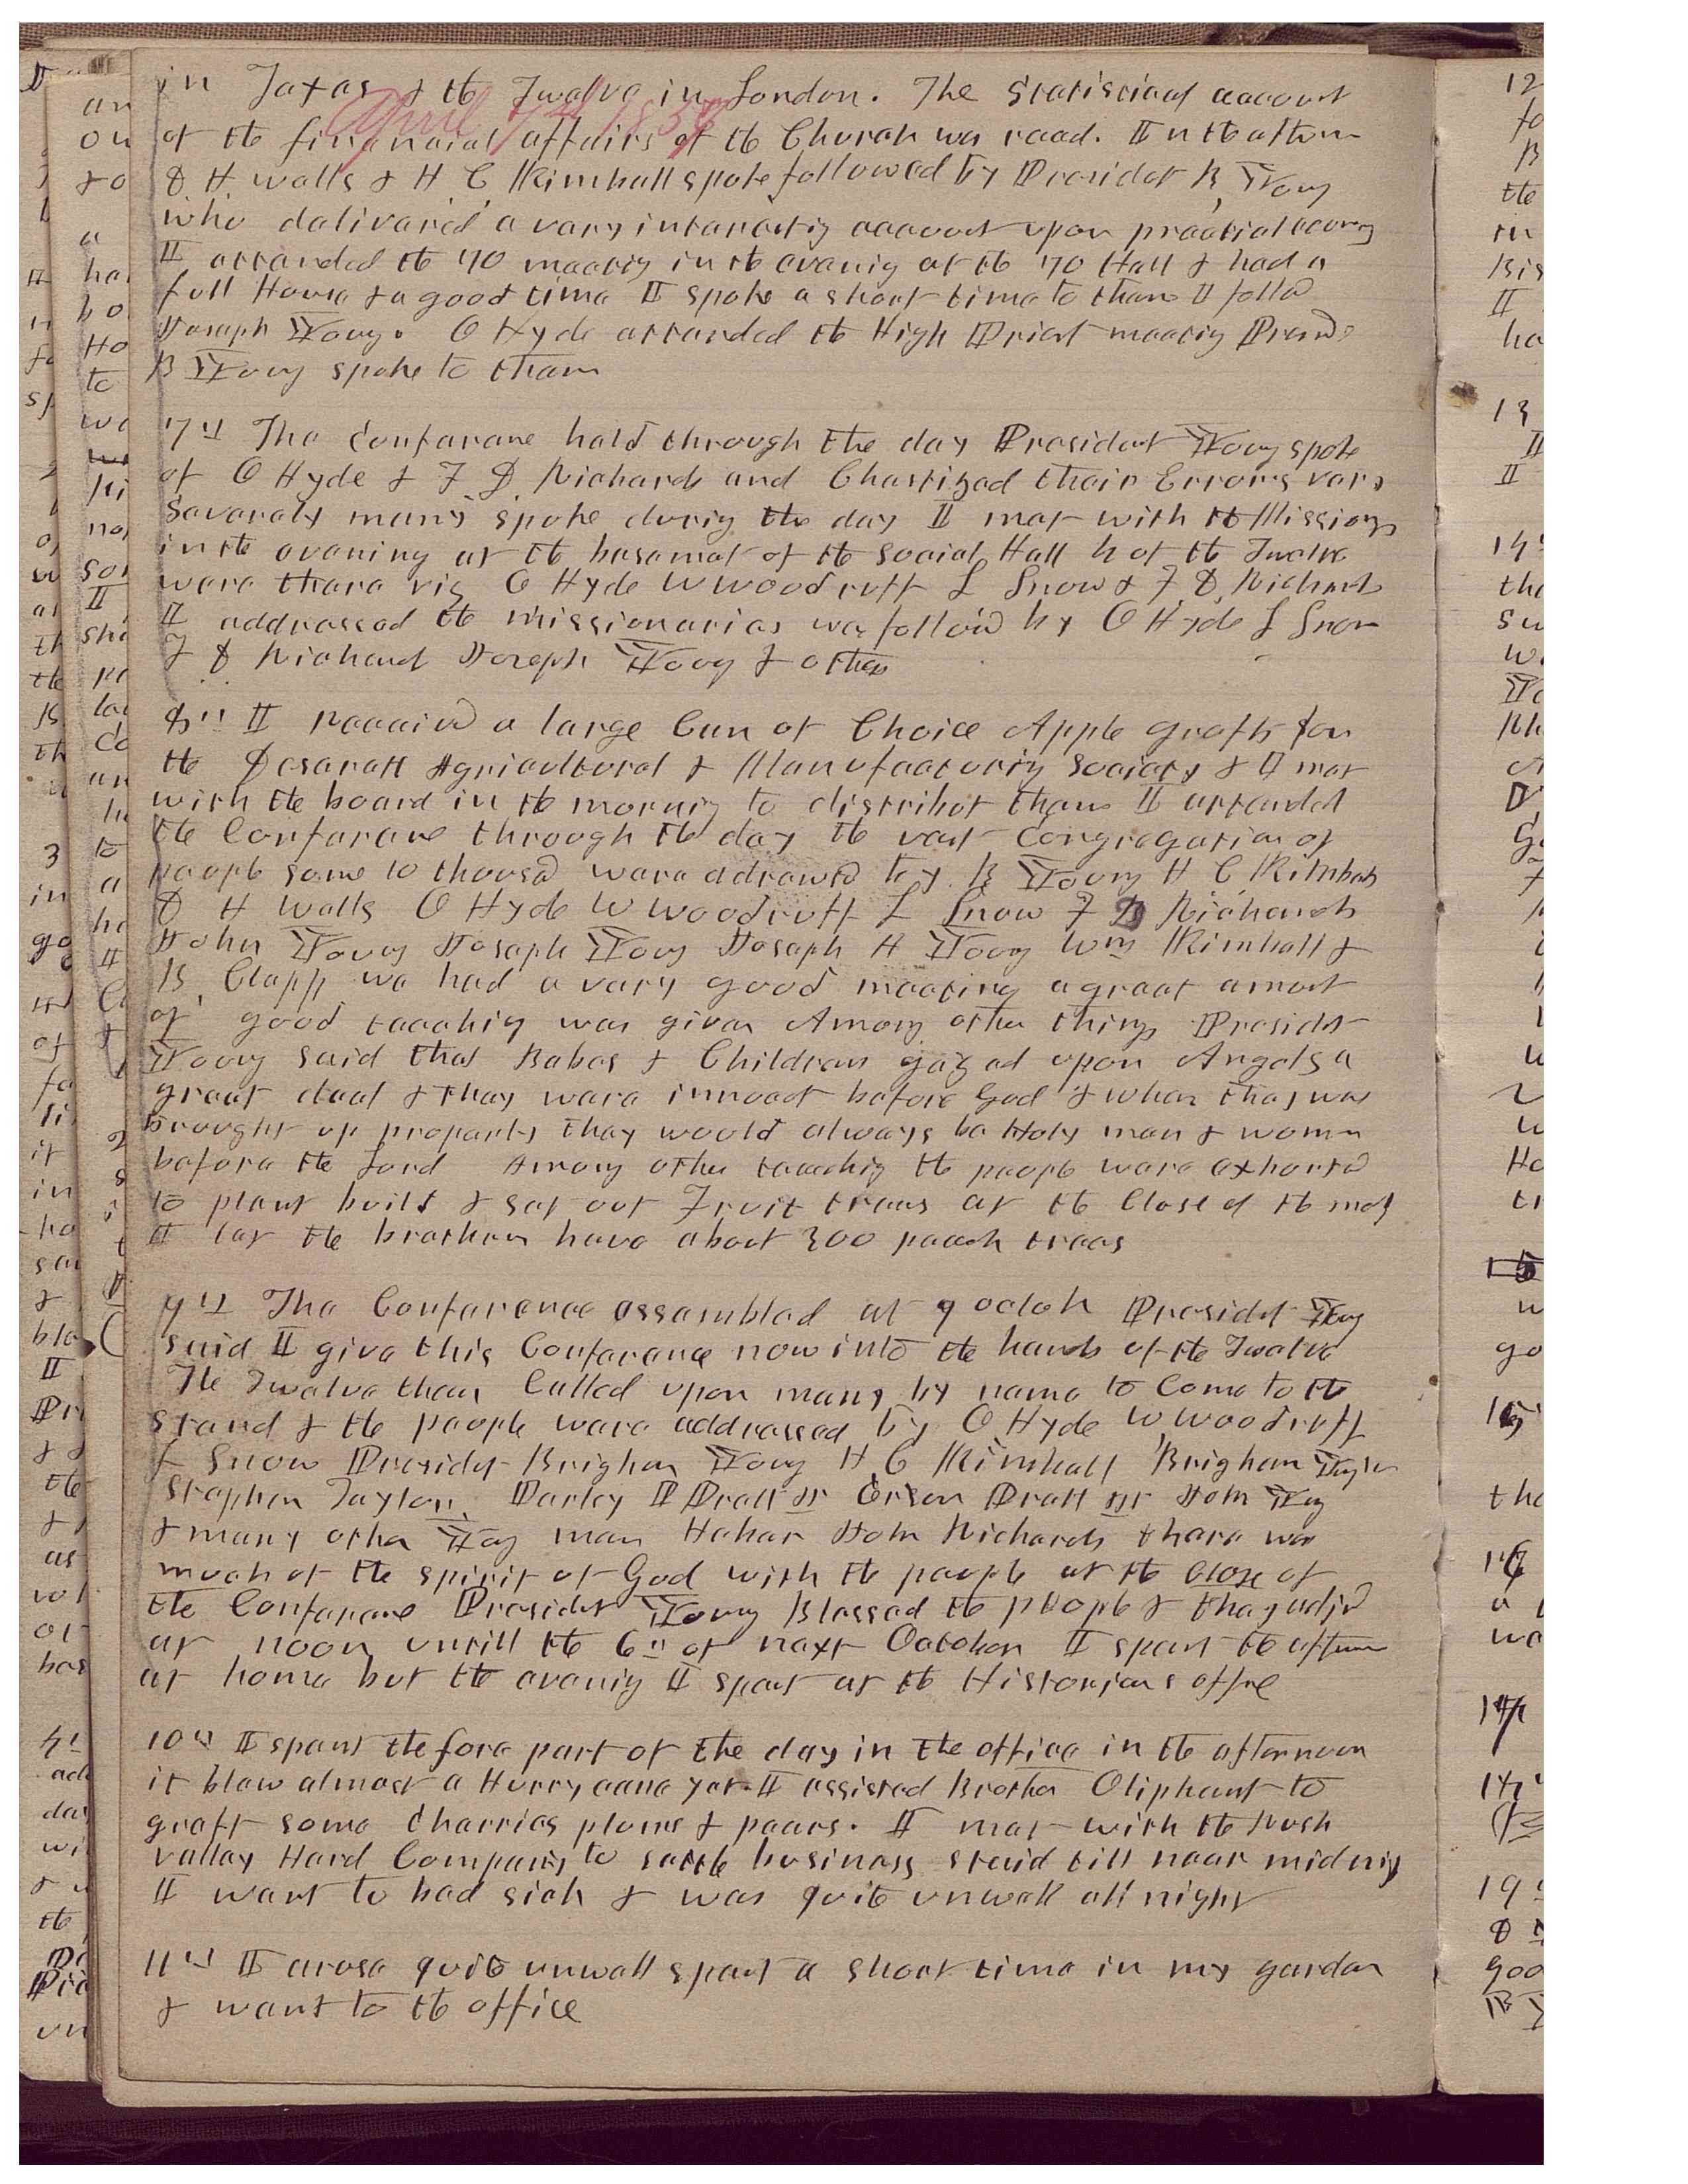 in Texas & the Twelve in London. The Statistical account
April 7th 1856
of the financial affairs of the Church was read. In the aftern
D H wells & H C Kimball spoke followed by President B Young
who delivered a very interestig account upon practical econmy
I attended the 70 meetig in the evenig at the 70 Hall & had a
full House & a good time I spoke a short time to them I folld
Joseph Young. O Hyde attended the High Priest meetig Presdt
B Young spoke to them
7th The Conferance held through the day President Young spoke
of O Hyde & F D Richards and Chastized their Errors vary
Severely many spoke durig the day I met with the Missions
in the evening at the basemet of the Social Hall 4 of the Twelve
were there viz O Hyde W Woodruff L Snow & F D Richards
I addressed the missionaries was follow'd by O Hyde L Snow
F D Richard Joseph Young & others
8th I receivd a large Can of Choice Apple grafts for
the Deserett Agricultural & Manufactorig Society & I met
with the board in the mornig to distribut them I attended
the Conferane through the day the vast Congregation of
people some 10 thousd were addrowsd by B Young H C Kimbal
D H Wells O Hyde W Woodruff L Snow F D Richards
John Young Joseph Young Joseph A Young Wm Kimball &
B Clapp we had a very good meeting a great amout
of good teachig was given Among other things Presidet
Young said that Babes & Children gazed upon Angels a
great deal & they were innocet before God & when they was
brought up properly they would always be Holy men & women
before the Lord Among other teachig the people were exhortd
to plant build & set out Fruit trees at the Close of the meg
I let the brethren have about 300 peach trees
9th The Conference assembled at 9 oclok Presidet Young
said I give this Conferance now into the hands of the Twelve
The Twelve then Called upon many by name to Come to the
stand & the people were addressed by O Hyde W Woodruff
L Snow Presidet Brigham Young H C Kimball Brigham Young jr
Stephen Taylor, Parley P Pratt jr Orson Pratt jr John Young
& many other Young men Heber John Richards there was
much of the spirit of God with the people at the Close of
the Conferane Presidet Young Blessed the people & they adjd
at noon untill the 6th of next October I spent the aftern
at home but the evenig I spent at the Historians office
10th I spent the fore part of the day in the office in the afternoon
it blew almost a Hurrycane yet I assisted Brother Oliphant to
graft some Cherries plums & pears. I met with the Rush
valley Herd Company to settle business staid till near midnig
I went to bed sick & was quite unwell all night
11th I arose quite unwell spent a short time in my garden
& went to the office